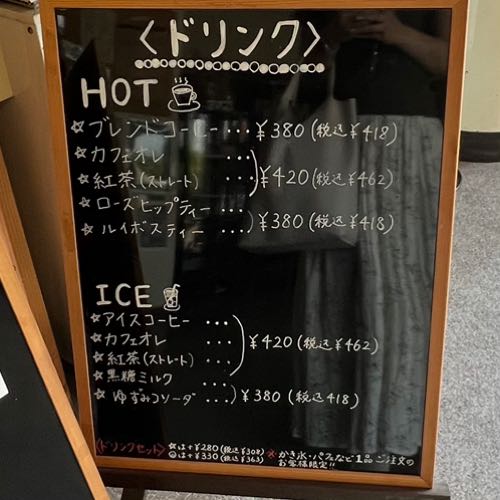 〈ドリンク〉
HOT
☆ブレンドコーヒー…¥380(税込¥418)
☆カフェオレ …
☆紅茶(ストレート) … ¥420(税込¥462)
☆ローズヒップティー…
☆ルイボスティー… ¥380(税込¥418)
ICE
☆アイスコーヒー …
☆カフェオレ …
☆紅茶(ストレート) … ¥420(税込¥462)
★黒糖ミルク …
☆ゆずみつソーダ … ¥380(税込418)
〈ドリンクセット〉 ☆は+¥280(税込¥308)
◎は+¥330(税込¥363)
※かき氷・パフェなど1品ご注文の
お客様限定!!